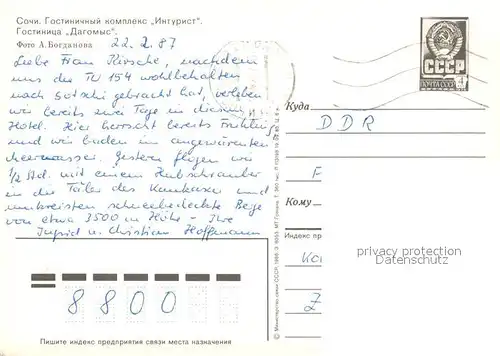 Сочи. Гостиничный комплекс „Интурист".
Гостиница „Дагомыс".
Фото А.Богданова
22.2.87
Liebe Frau Kirsche, nachdem
uns die TU 154 wohlbehalten
nach Sotschi gebracht hat, verleben
wir bereits zwei Tage in diesem
Hotel. Hier herrscht bereits Frühling
und wir baden im angewärmten
Meerwasser. Gestern flogen wir
1/2 Std. mit einem Hubschrauber
in die Täler des Kaukasus und
umkreisten schneebedeckte Berge
von etwa 3500 m Höhe - Ihre
Ingrid u. Christian Hoffmann
8800
Пишите индекс предприятия связи места назначения
СССР
ПОЧТА
4
Куда
DDR
F
Кому
Индекс пр
Ko
Z
© Министерство связи СССР, 1986
privacy protection
VERNIERS.COM